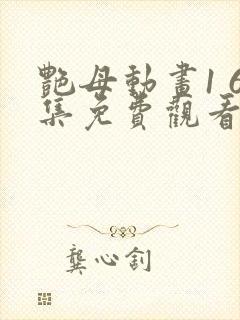 艷母動畫16
集免費觀看
龔心釗